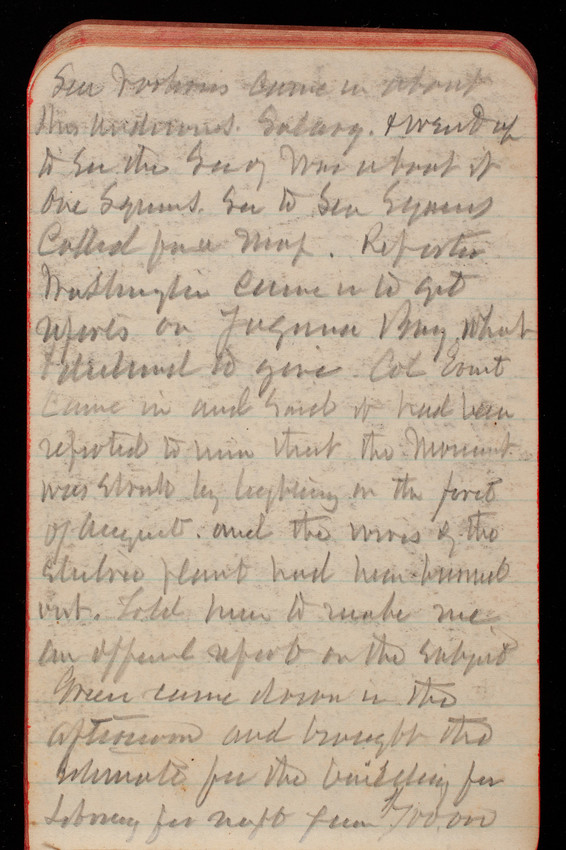 Gen came in about
this Salary. & went up
to See the Sec of War about it
See to See
Called for a Map. Reporter
Washington came in to get
reports on Bay what
I to give. Col Ernst
Came in and Said it had been
reported to him that the Monument
was Struck by lightning on the first
of August. and the wires of the
Electric plant had been burned
out. Told him to make me
an official report on the Subject
Green came down in the
afternoon and brought the
estimate for the building for
Library for next year $700.000